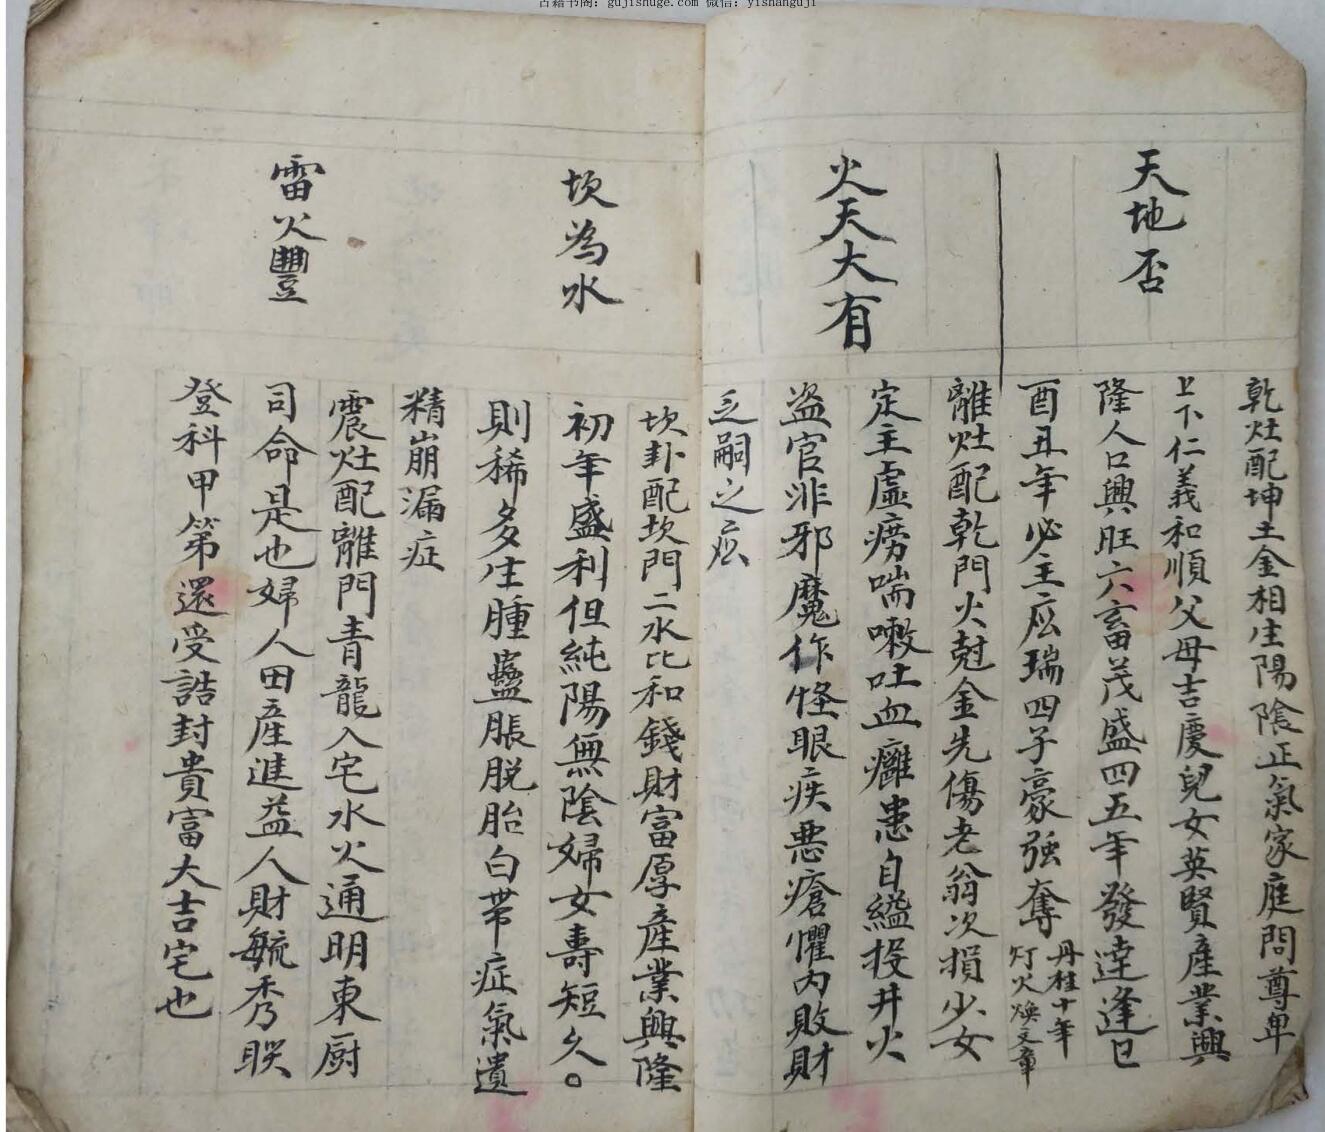 古籍书阁：gujishuge.com 微信：yishanguji
天地否
乾灶配坤土金相生陽陰正氣家庭問尊卑
上下仁義和順父母吉慶兒女英賢産業興
隆人口興旺六畜茂盛四五年發達逢巳
酉丑年必主応瑞四子豪强奪
丹桂十年
灯火煥文章
火天大有
離灶配乾門火尅金先傷老翁次損少女
定主虛癆喘嗽吐血癱患自縊投井火
盜官非邪魔作怪眼疾悪瘡懼内敗財
乏嗣之応
坎為水
坎卦配坎門二水比和錢財富厚産業興隆
初年盛利但純陽無陰婦女壽短久。
則稀多生腫蠱脹脱胎白带症氣遺
精崩漏症
雷火豐
震灶配離門青龍入宅水火通明東厨
司命是也婦人田産進益人財毓秀聯
登科甲第還受誥封貴富大吉宅也